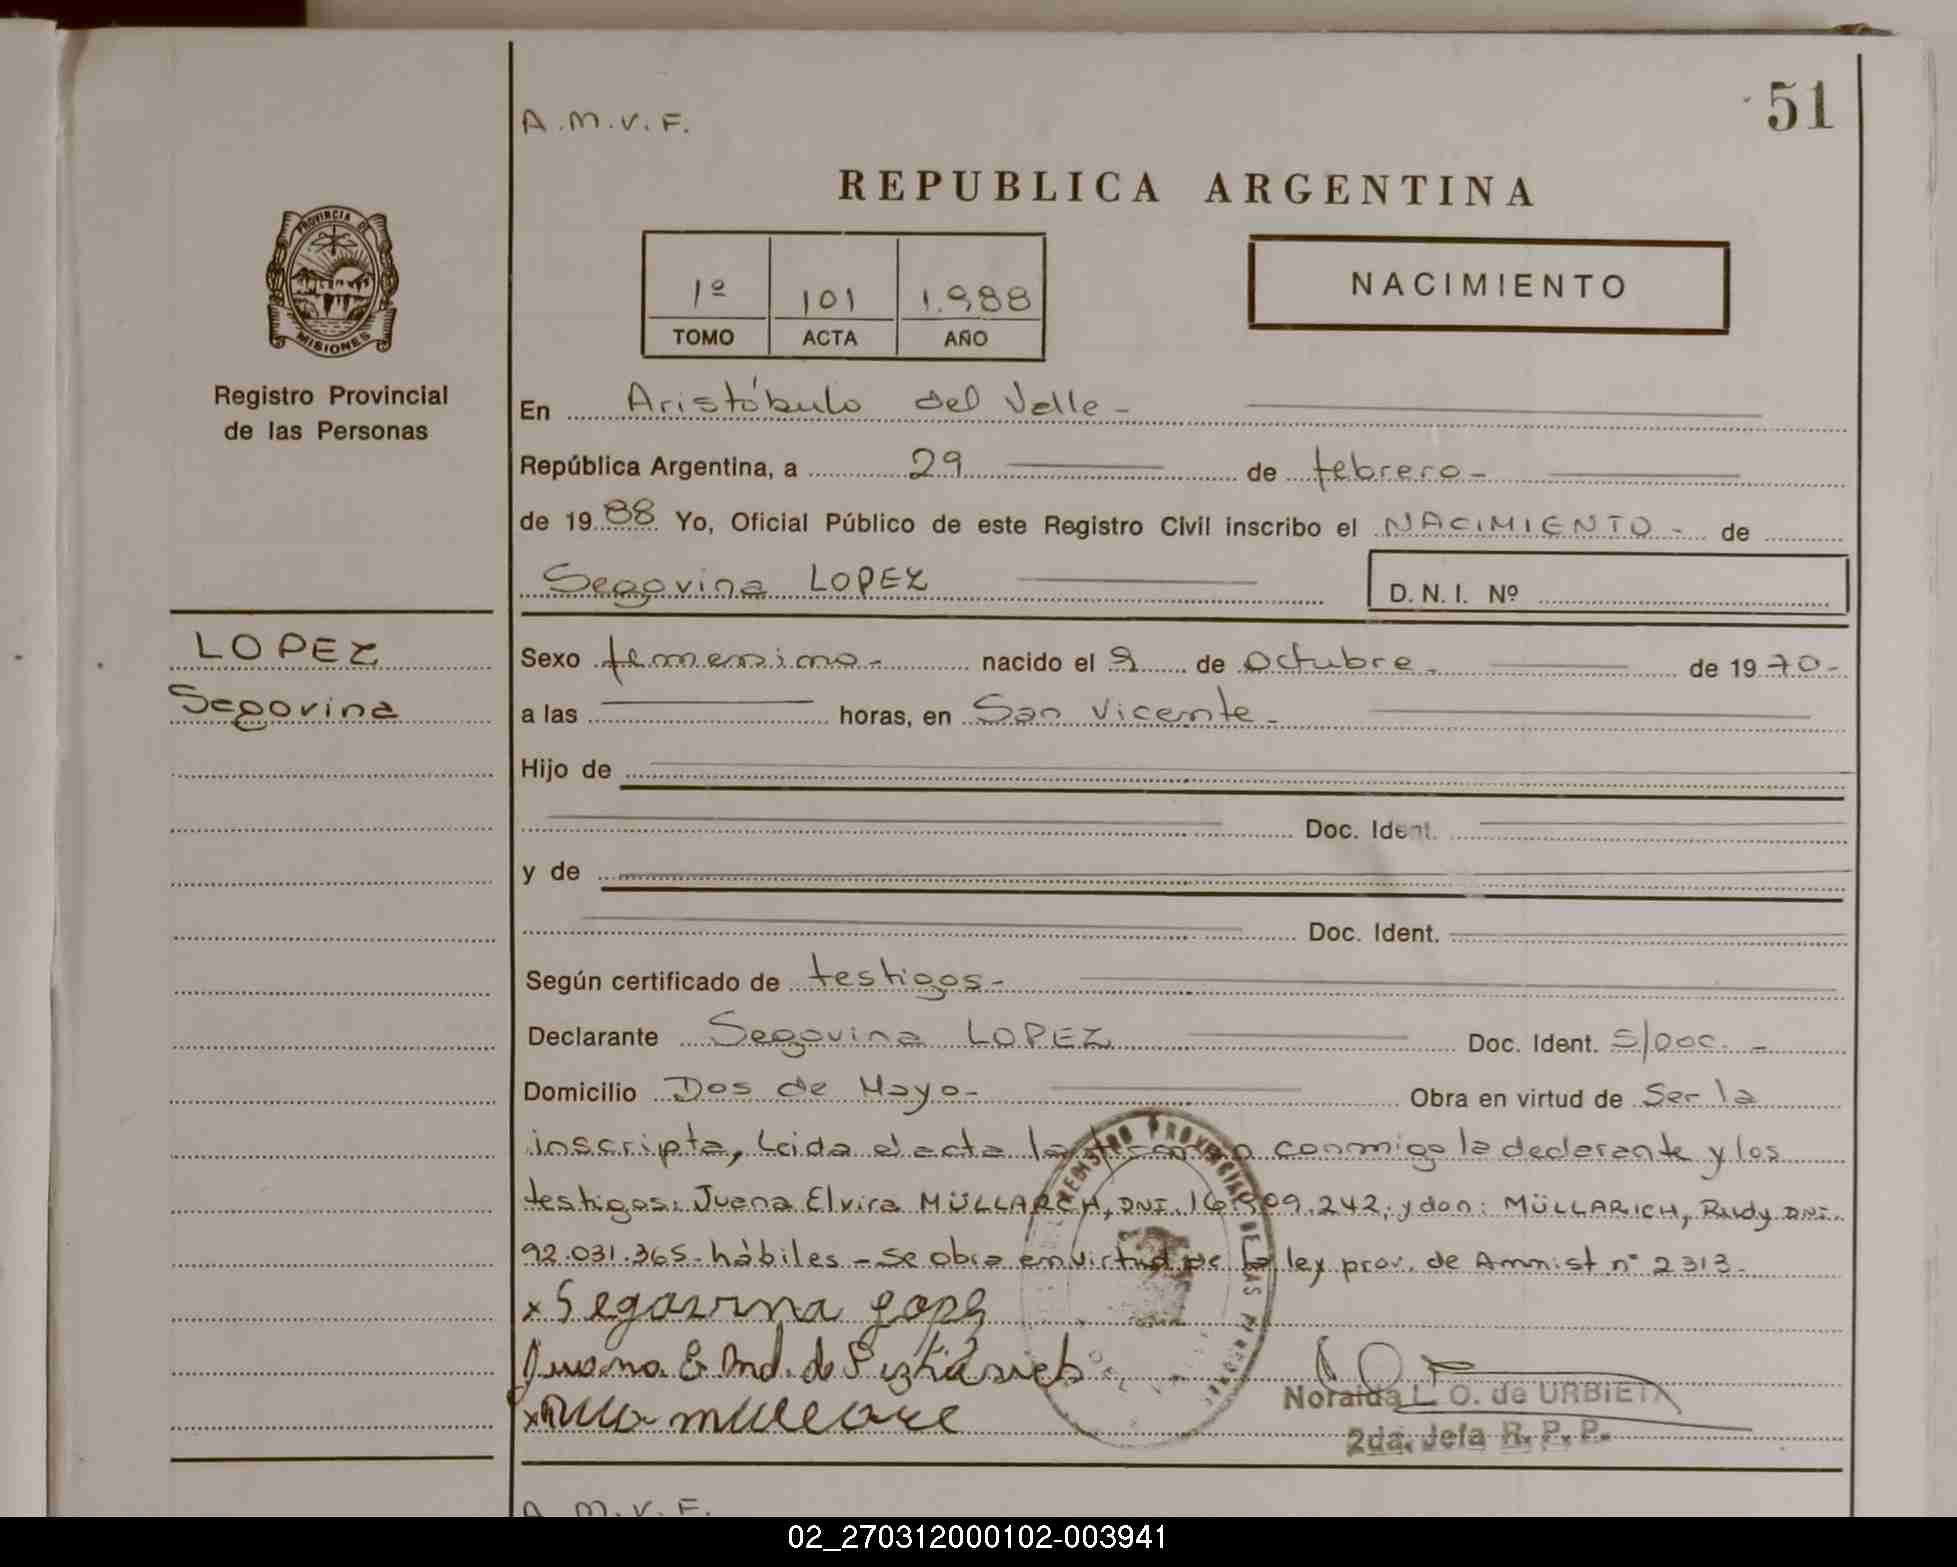 A.M.V.F.
51
REPUBLICA ARGENTINA
PROVINCIA DE
MISIONES
Registro Provincial
de las Personas
1º 101 1.988
TOMO ACTA AÑO
NACIMIENTO
En Aristóbulo del Valle-
República Argentina, a 29 de febrero-
de 1988 Yo, Oficial Público de este Registro Civil inscribo el NACIMIENTO- de
Segovina LOPEZ
D.N.I. Nº
LOPEZ
Segovina
Sexo femenino- nacido el 9 de octubre- de 1970-
a las horas, en San Vicente-
Hijo de
Doc. Ident.
y de
Doc. Ident.
Según certificado de testigos-
Declarante Segovina LOPEZ Doc. Ident. S/Doc. -
Domicilio Dos de Mayo- Obra en virtud de Ser la
inscripta, Leida el acta la conmigo la declarante y los
testigos: Juana Elvira MÜLLARCH, DNI. 242, y don: MÜLLARICH, Rudy DNI.
92.031.365- hábiles - se obra en virtud de la ley prov. de Amnist nº 2313-
x Segovina Lopez
Juana E
x
Noraida L. O. de URBIETA
2da. Jefa R. P. P.
A.M.V.F.
02_270312000102-003941